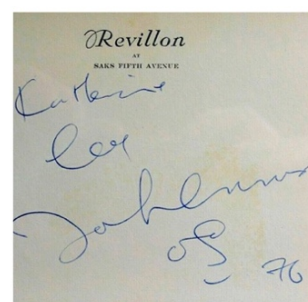 Revillon
AT
SAKS FIFTH AVENUE
Katherine
John Lennon
76